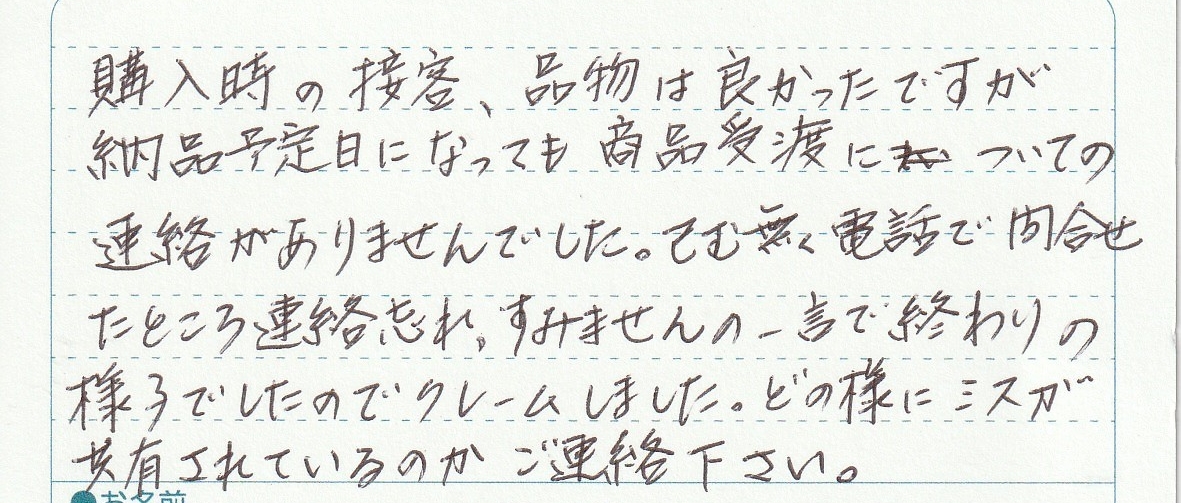 購入時の接客、品物は良かったですが
納品予定日になっても商品受渡についての
連絡がありませんでした。てむ無く電話で問合せ
たところ連絡忘れ、すみませんの一言で終わりの
様子でしたのでクレームしました。どの様にミスが
共有されているのかご連絡下さい。
●お名前